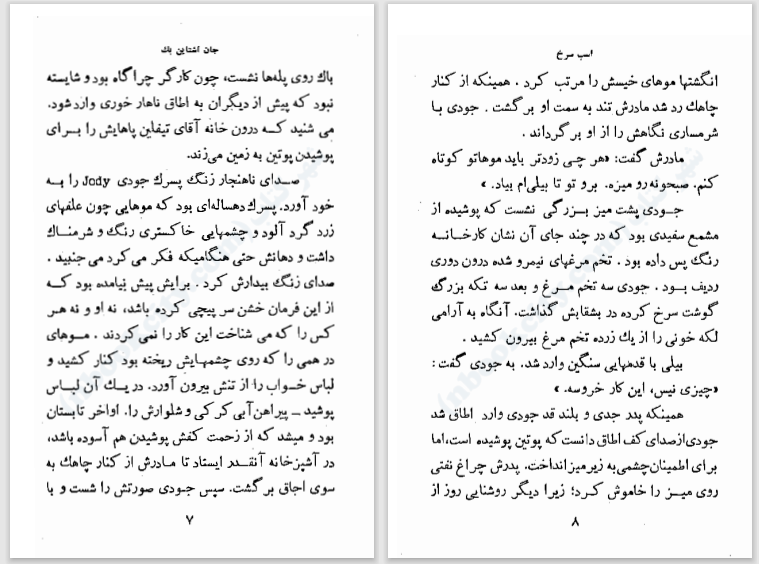 جان اشتاین بك
باك روی پله‌ها نشست، چون کارگر چراگاه بود و شایسته
نبود که پیش از دیگران به اطاق ناهار خوری وارد شود.
می شنید کــه درون خانه آقای تیفلین پاهایش را بــرای
پوشیدن پوتین به زمین می‌زند.
صــدای ناهنجار زنگ پسرك جودی Jody را بــه
خود آورد. پسرك دهساله‌ای بود که موهایی چون علفهای
زرد گرد آلود و چشمهایی خاکستری رنگ و شرمناك
داشت و دهانش حتی هنگامیکه فکر می کرد می جنبید .
صدای زنگ بیدارش کرد . برایش پیش نیامده بود کــه
از این فرمان خشن سر پیچی کرده باشد، نه او و نه هر
کس را که می شناخت این کار را نمی کردند . مــوهای
در همی را که روی چشمهایش ریخته بود کنار کشید و
لباس خــواب را از تنش بیرون آورد. در یــك آن لبــاس
پوشید ــ پیراهن آبی کر کی و شلوارش را. اواخر تابستان
بود و میشد که از زحمت کفش پوشیدن هم آسوده باشد،
در آشپزخانه آنقــدر ایستاد تا مــادرش از کنار چاهك به
سوی اجاق بر گشت. سپس جــودی صورتش را شست و با
۷
اسب سرخ
انگشتها موهای خیسش را مرتب کرد . همینکه از کنار
چاهك رد شد مادرش تند به سمت او بر گشت . جودی بــا
شرمساری نگاهش را از او بر گرداند .
مادرش گفت: «هر چی زودتر باید موهاتو کوتاه
کنم. صبحونه رو میزه. برو تو تا بیلی‌ام بیاد. »
جــودی پشت میز بــزرگی نشست که پوشیده از
مشمع سفیدی بود که در چند جای آن نشان کارخــانــه
رنگ پس داده بود . تخم مرغهای نیمرو شده درون دوری
ردیف بــود . جودی سه تخم مــرغ و بعد سه تکه بزرگ
گوشت سرخ کرده در بشقابش گذاشت. آنگاه به آرامی
لکه خونی را از یك زرده تخم مرغ بیرون کشید .
بیلی با قدمهایی سنگین وارد شد. به جودی گفت :
«چیزی نیس، این کار خروسه. »
همینکه پدر جدی و بلند قد جودی وارد اطاق شد
جودی از صدای کف اطاق دانست که پوتین پوشیده است، اما
برای اطمینان چشمی به زیر میز انداخت. پدرش چراغ نفتی
روی میــز را خاموش کــرد؛ زیرا دیگر روشنایی روز از
۸